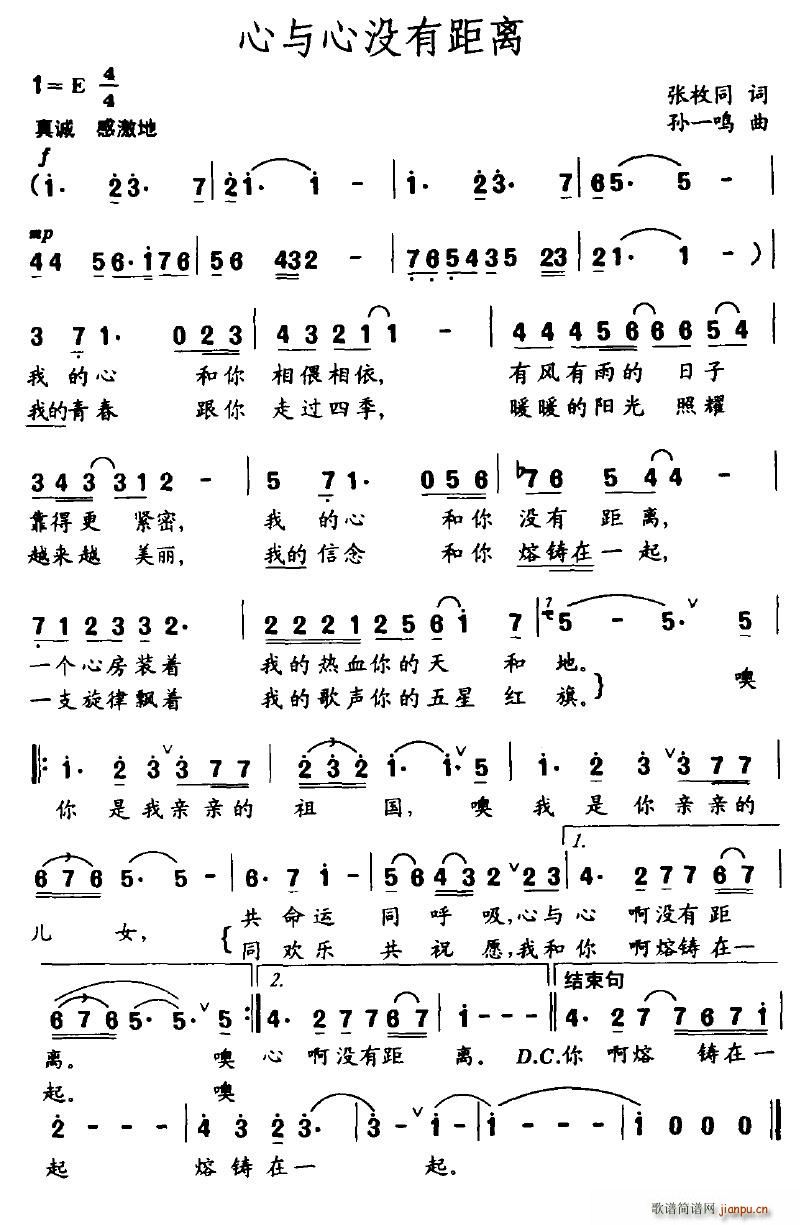 心与心没有距离
1=E 4/4
张枚同 词
真诚 感激地
孙一鸣 曲
f
(i· 2 3· 7 | 2 i· i - | i· 2 3· 7 | 6 5· 5 - |
mp
4 4 5 6·i 7 6 | 5 6 4 3 2 - | 7 6 5 4 3 5 2 3 | 2 1· 1 - ) |
3 7 1· 0 2 3 | 4 3 2 1 1 - | 4 4 4 5 6 6 6 5 4 |
我 的心 和你 相偎相依, 有风有雨的 日子
我的青春 跟你 走过四季, 暖暖的阳光 照耀
3 4 3 3 1 2 - | 5 7 1· 0 5 6 | b7 6 5 4 4 - |
靠得更 紧密, 我 的心 和你 没有 距离,
越来越 美丽, 我的信念 和你 熔铸在一起,
7 1 2 3 3 2· | 2 2 2 1 2 5 6 i 7 | 5 - 5· ∨ 5 |
一个心房装着 我的热血你的天 和 地。 噢
一支旋律飘着 我的歌声你的五星 红 旗。
‖: i· 2 3 ∨ 3 7 7 | 2 3 2 i· i· ∨ 5 | i· 2 3 ∨ 3 7 7 |
你 是我亲亲的 祖 国, 噢 我 是你亲亲的
1.
6 7 6 5· 5 - | 6· 7 i - | 5 6 4 3 2 ∨ 2 3 | 4· 2 7 7 6 7 |
儿 女, 共命运 同呼 吸,心与心 啊没有距
同欢乐 共祝 愿,我和你 啊熔铸在一
2. 结束句
6 7 6 5· 5· ∨ 5 :‖ 4· 2 7 7 6 7 | i - - - ‖ 4· 2 7 7 6 7 i |
离。 噢 心 啊没有距 离。 D.C.你 啊熔 铸在一
起。 噢
2 - - - | 4 3 2 3· | 3 - ∨ i i | i - - - | i 0 0 0 ‖
起 熔铸在一 起。
歌谱简谱网 jianpu.cn